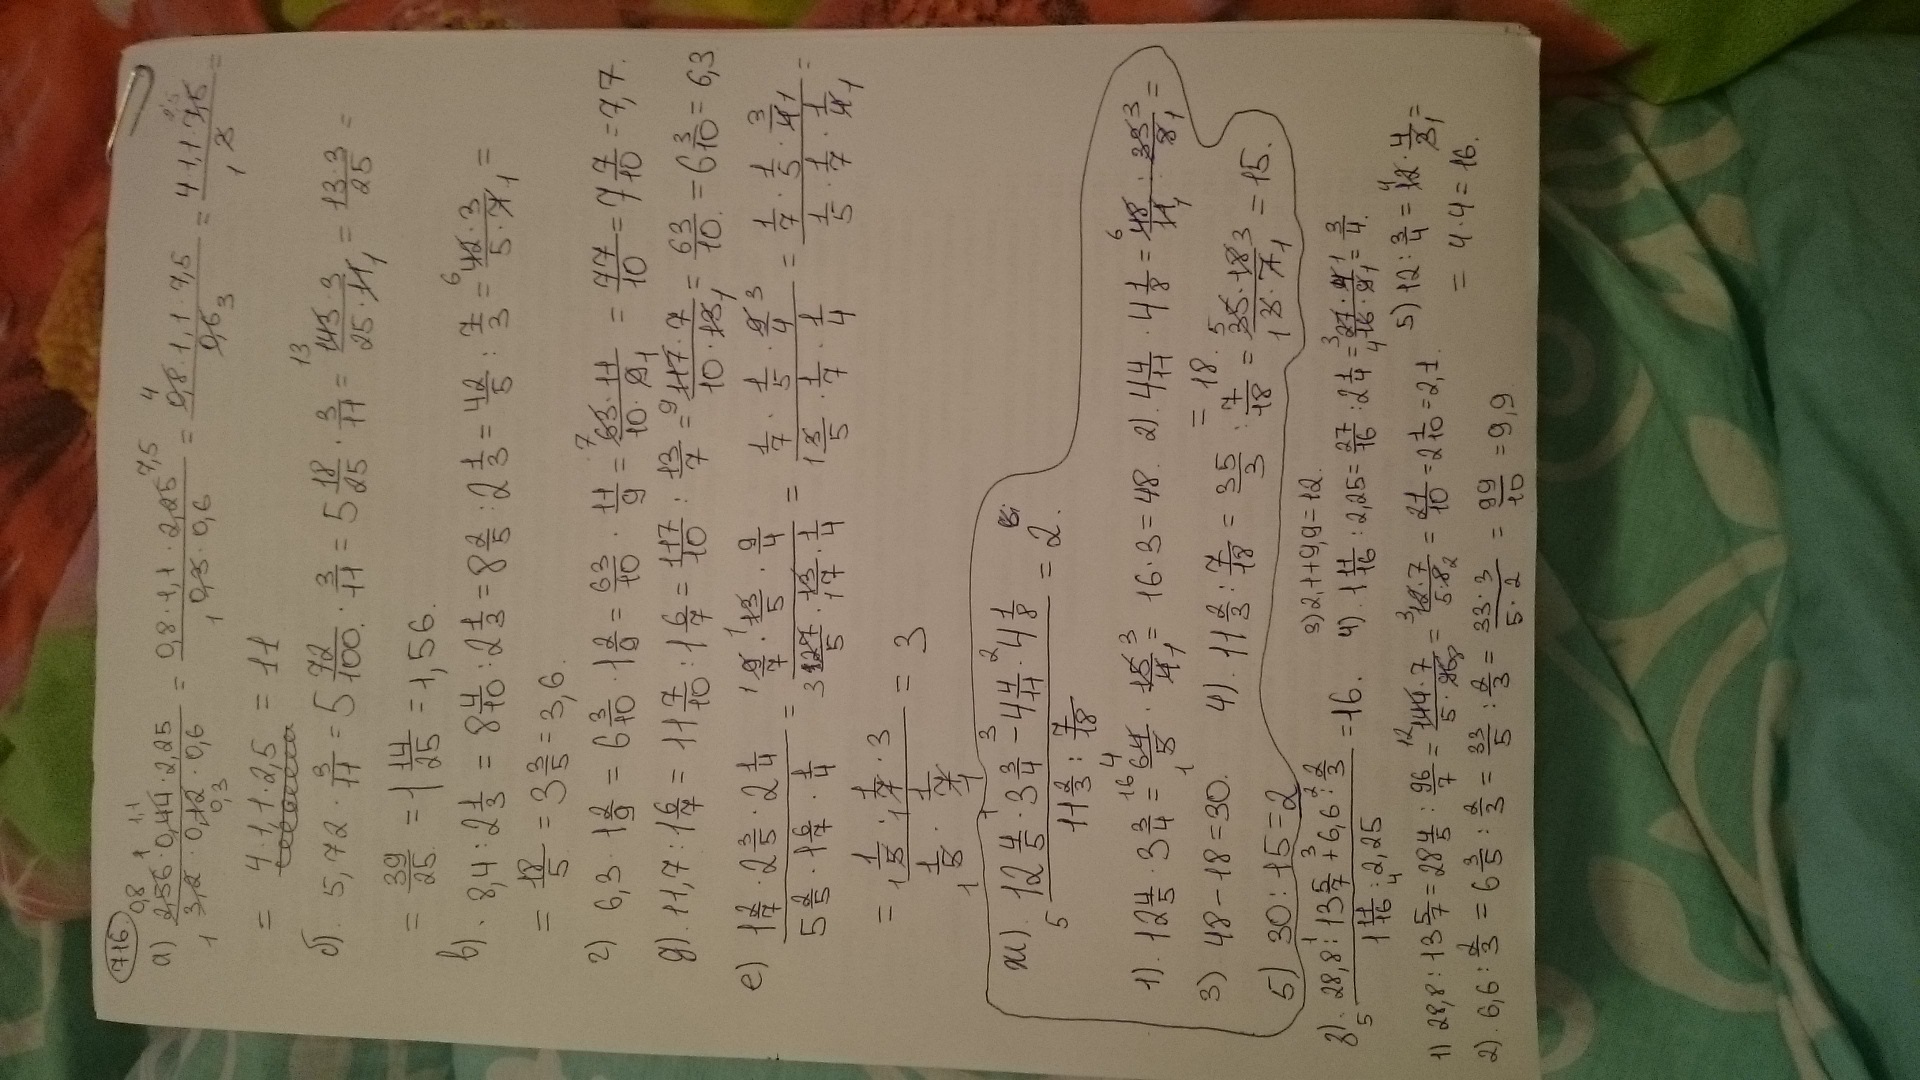 716
а) (2,56 · 0,44 · 2,25)/(3,2 · 0,12 · 0,6) = (0,8 · 1,1 · 2,25)/(0,3 · 0,6) = (0,8 · 1,1 · 7,5)/0,6 = (4 · 1,1 · 7,5)/3 =
= 4 · 1,1 · 2,5 = 11
б). 5,72 · 3/11 = 5 72/100 · 3/11 = 5 18/25 · 3/11 = (143 · 3)/(25 · 11) = (13 · 3)/25 =
= 39/25 = 1 14/25 = 1,56.
в). 8,4 : 2 1/3 = 8 4/10 : 2 1/3 = 8 2/5 : 2 1/3 = 42/5 : 7/3 = (42 · 3)/(5 · 7) =
= 18/5 = 3 3/5 = 3,6.
г) 6,3 · 1 2/9 = 6 3/10 · 1 2/9 = 63/10 · 11/9 = (63 · 11)/(10 · 9) = 77/10 = 7 7/10 = 7,7.
д). 11,7 : 1 6/7 = 11 7/10 : 1 6/7 = 117/10 : 13/7 = (117 · 7)/(10 · 13) = 63/10 = 6 3/10 = 6,3
е) (1 2/7 · 2 3/5 · 2 1/4)/(5 2/5 · 1 6/7 · 1/4) = (9/7 · 13/5 · 9/4)/(27/5 · 13/7 · 1/4) = (1/7 · 1/5 · 9/4)/(3/5 · 1/7 · 1/4) = (1/7 · 1/5 · 3/4)/(1/5 · 1/7 · 1/4) =
= (1/5 · 1/7 · 3)/(1/5 · 1/7) = 3
ж). (12 4/5 · 3 3/4 - 4 4/11 · 4 1/8)/(11 2/3 : 7/18) = 2.
1). 12 4/5 · 3 3/4 = 64/5 · 15/4 = 16 · 3 = 48. 2). 4 4/11 · 4 1/8 = 48/11 · 33/8 =
= 18.
3) 48 - 18 = 30. 4). 11 2/3 : 7/18 = 35/3 : 7/18 = (35 · 18)/(3 · 7) = 15.
5) 30 : 15 = 2
з). (28,8 : 13 5/7 + 6,6 : 2/3)/(1 11/16 : 2,25) = 16.
3) 2,1 + 9,9 = 12.
4). 1 11/16 : 2,25 = 27/16 : 2 1/4 = (27 · 4)/(16 · 9) = 3/4.
1) 28,8 : 13 5/7 = 28 4/5 : 96/7 = (144 · 7)/(5 · 96) = (12 · 7)/(5 · 8) = 21/10 = 2 1/10 = 2,1. 5) 12 : 3/4 = 12 · 4/3 =
= 4 · 4 = 16.
2). 6,6 : 2/3 = 6 3/5 : 2/3 = 33/5 : 2/3 = (33 · 3)/(5 · 2) = 99/10 = 9,9